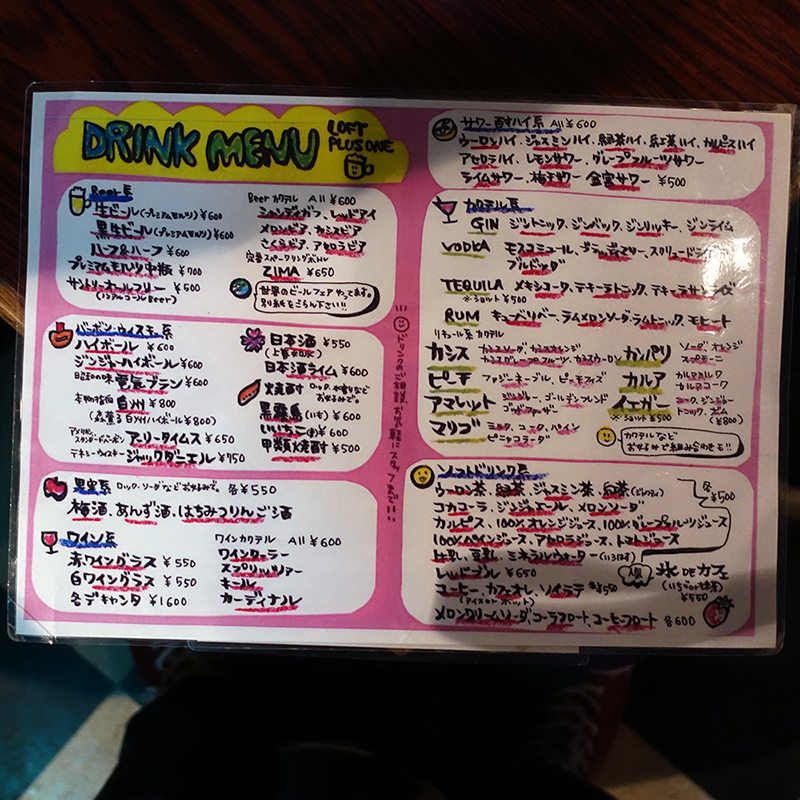 DRINK MENU
LOFT
PLUS ONE
Beer系
生ビール(プレミアムモルツ)¥600
黒生ビール(プレミアムモルツ)¥600
ハーフ&ハーフ ¥600
プレミアムモルツ中瓶 ¥700
サントリーオールフリー ¥500
(ノンアルコールBeer)
Beerカクテル All ¥600
シャンディガフ、レッドアイ
メロンビア、カシスビア
さくらビア、アセロラビア
定番スパークリング
ZIMA ¥650
世界のビールフェアやってます。
別紙をごらん下さい!!
バーボン・ウイスキー系
ハイボール ¥600
ジンジャーハイボール¥600
昭和の味 電気ブラン ¥600
白州 ¥800
(白州ハイボール¥800)
アメリカン、スタンダードバーボン アーリータイムス ¥650
テネシーウイスキー ジャックダニエル ¥750
日本酒 ¥550
(上善如水)
日本酒ライム ¥600
焼酎 ロック、水割りなどお好みで。
黒霧島(いも) ¥600
いいちこ(麦)¥600
甲類焼酎 ¥500
果実系 ロック、ソーダなどお好みで。 各¥550
梅酒、あんず酒、はちみつりんご酒
ワイン系
赤ワイングラス ¥550
白ワイングラス ¥550
各デキャンタ ¥1600
ワインカクテル All ¥600
ワインクーラー
スプリッツァー
キール
カーディナル
ドリンクのご相談お気軽にスタッフまで!!
サワー・酎ハイ系 All ¥600
ウーロンハイ、ジャスミンハイ、緑茶ハイ、紅茶ハイ、カルピスハイ
アセロラハイ、レモンサワー、グレープフルーツサワー
ライムサワー、梅干サワー 金宮サワー ¥500
カクテル系
GIN ジントニック、ジンバック、ジンリッキー、ジンライム
VODKA モスコミュール、ブラッディマリー、スクリュードライバー
ブルドッグ
TEQUILA メキシコーク、テキーラトニック、テキーラサンライズ
※ショット¥500
RUM キューバリバー、ラムメロンソーダ、ラムトニック、モヒート
リキュール系カクテル
カシス カシスソーダ、カシスオレンジ
カシスグレープフルーツ、カシスウーロン
カンパリ ソーダ、オレンジ
スプモーニ
ピーチ ファジーネーブル、ピーチフィズ
カルア カルアミルク
カルアコーク
アマレット ジンジャー、ゴールデンフレンド
ゴッドファーザー
イェガー コーク、ジンジャー
トニック、ボム
※ショット¥500 (¥800)
マリブ ミルク、コーク、パイン
ピニャコラーダ
カクテルなど
お好みで組み合わせも!!
ソフトドリンク系
各¥500
ウーロン茶、緑茶、ジャスミン茶、紅茶
コカコーラ、ジンジャエール、メロンソーダ
カルピス、100%オレンジジュース、100%グレープフルーツジュース
100%パインジュース、アセロラジュース、トマトジュース
牛乳、豆乳、ミネラルウォーター(いろはす)
レッドブル ¥650
コーヒー、カフェオレ、ソイラテ 各¥550
(アイス or ホット)
人気 氷DEカフェ
(いちごor抹茶)
¥550
メロンクリームソーダ、コーラフロート、コーヒーフロート 各600